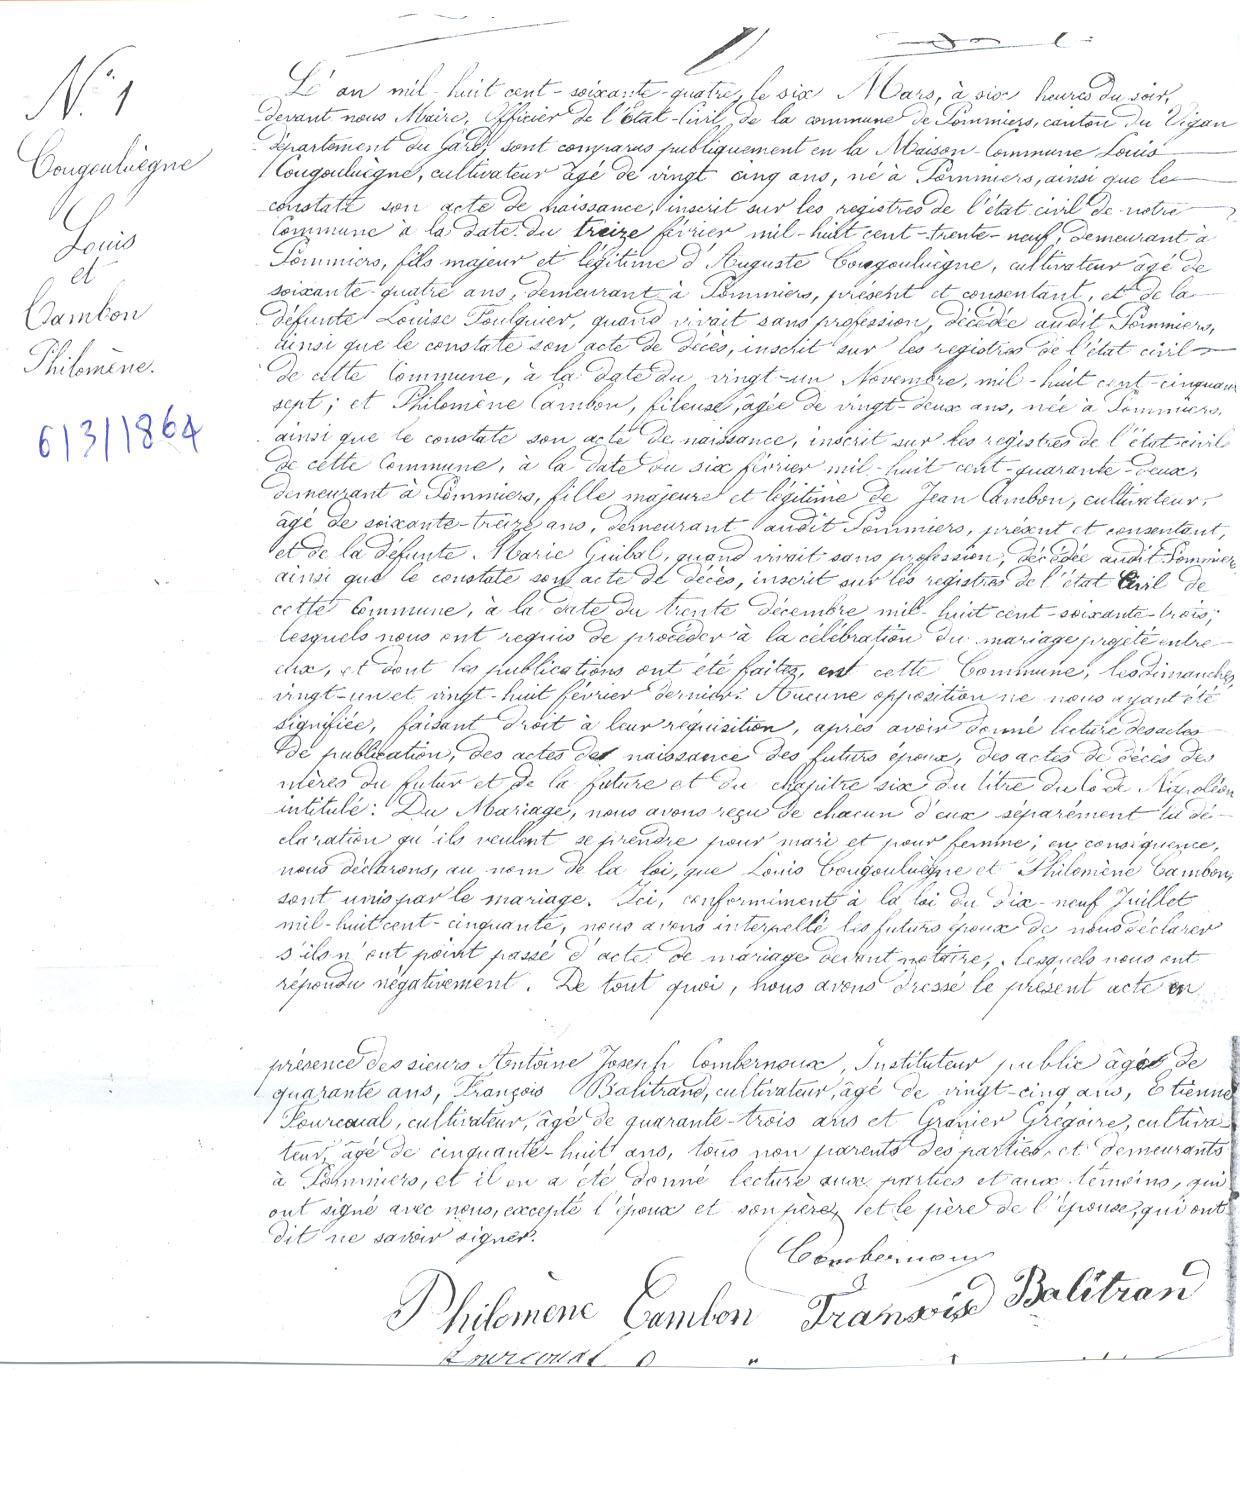 N.º 1
Cougouluègne
Louis
et
Cambon
Philomène.
6/3/1864
L'an mil-huit cent-soixante-quatre, le six Mars, à six heures du soir,
devant nous Maire, Officier de l'État-Civil, de la commune de Pommiers, canton du Vigan
Département du Gard, sont comparus publiquement en la Maison-Commune Louis
Cougouluègne, cultivateur âgé de vingt cinq ans, né à Pommiers, ainsi que le
constate son acte de naissance, inscrit sur les registres de l'état civil de notre
Commune à la date du treize février mil-huit cent-trente-neuf, demeurant à
Pommiers, fils majeur et légitime d'Auguste Cougouluègne, cultivateur âgé de
soixante-quatre ans, demeurant à Pommiers, présent et consentant, et de la
défunte Louise Poulquier, quand vivait sans profession, décédée audit Pommiers,
ainsi que le constate son acte de décès, inscrit sur les registres de l'état civil
de cette Commune, à la date du vingt-un Novembre, mil-huit cent-cinquante
sept; et Philomène Cambon, fileuse, âgée de vingt-deux ans, née à Pommiers,
ainsi que le constate son acte de naissance, inscrit sur les registres de l'état-civil
de cette Commune, à la date du six février mil-huit cent-quarante-deux,
demeurant à Pommiers, fille majeure et légitime de Jean Cambon, cultivateur,
âgé de soixante-treize ans, demeurant audit Pommiers, présent et consentant,
et de la défunte Marie Guibal, quand vivait sans profession, décédée audit Pommiers
ainsi que le constate son acte de décès, inscrit sur les registres de l'état Civil de
cette Commune, à la date du trente décembre mil-huit cent-soixante-trois;
lesquels nous ont requis de procéder à la célébration du mariage projeté entre
eux, et dont les publications ont été faites, en cette Commune, les dimanches,
vingt-un et vingt-huit février dernier. Aucune opposition ne nous ayant été
signifiée, faisant droit à leur réquisition, après avoir donné lecture des actes
de publication, des actes de naissance des futurs époux, des actes de décès des
mères du futur et de la future et du chapitre six du titre du Code Napoléon
intitulé: Du Mariage, nous avons reçu de chacun d'eux séparément la dé-
claration qu'ils veulent se prendre pour mari et pour femme; en conséquence,
nous déclarons, au nom de la loi, que Louis Cougouluègne et Philomène Cambon,
sont unis par le mariage. Ici, conformément à la loi du dix-neuf Juillet
mil-huit cent-cinquante, nous avons interpellé les futurs époux de nous déclarer
s'ils n'ont point passé d'acte de mariage devant notaire, lesquels nous ont
répondu négativement. De tout quoi, nous avons dressé le présent acte en
présence des sieurs Antoine Joseph Combernoux, Instituteur public âgé de
quarante ans, François Balitrand, cultivateur, âgé de vingt-cinq ans, Etienne
Pourcoual, cultivateur, âgé de quarante-trois ans et Granier Grégoire, cultiva-
teur, âgé de cinquante-huit ans, tous non parents des parties, et demeurants
à Pommiers, et il en a été donné lecture aux parties et aux témoins, qui
ont signé avec nous, excepté l'époux et son père, et le père de l'épouse, qui ont
dit ne savoir signer.
Combernoux
Philomène Cambon François Balitrand
Pourcoual